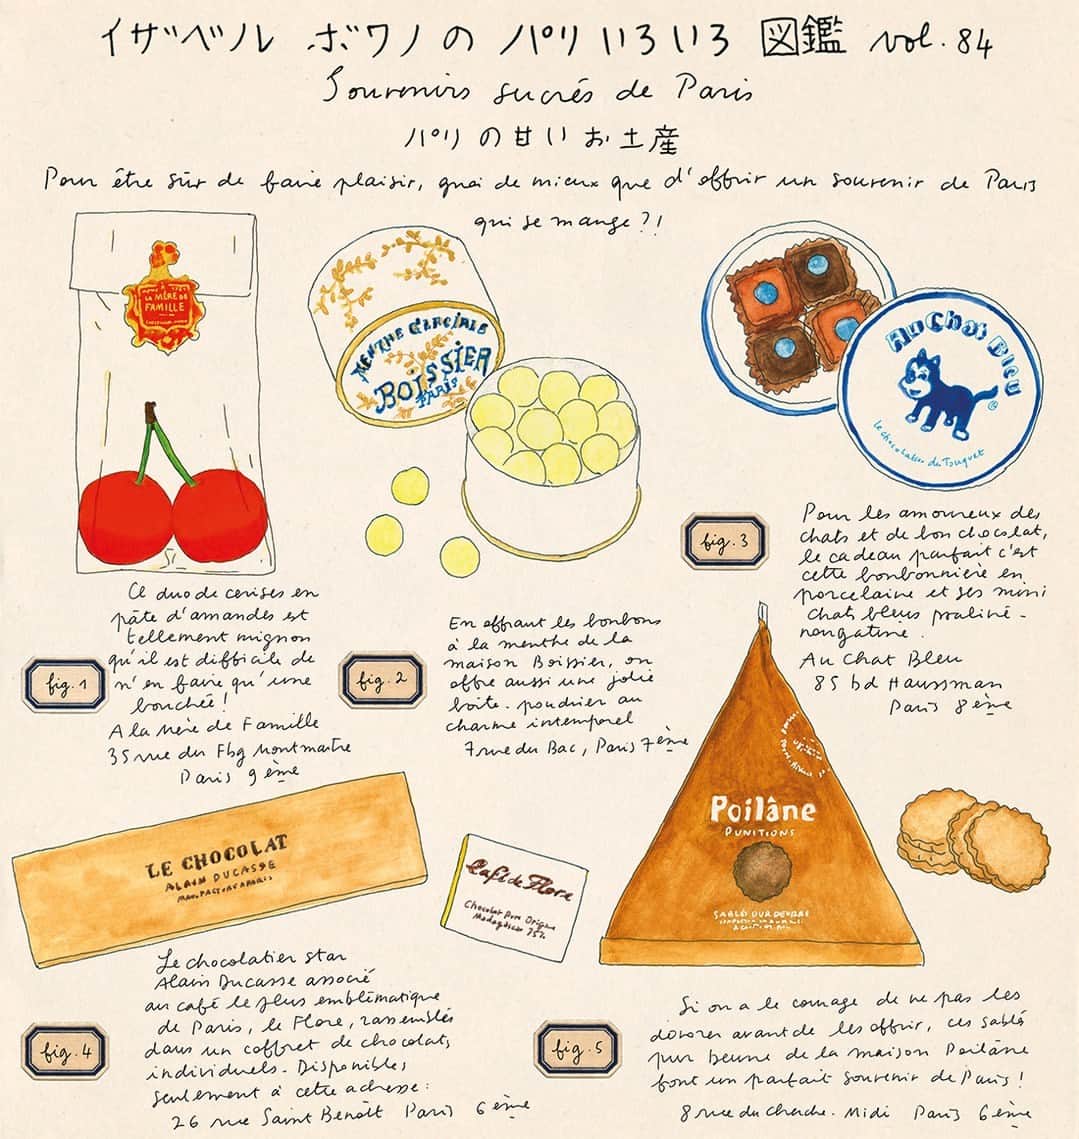 イザベル ボワノの パリいろいろ 図鑑 vol. 84
Souvenirs sucrés de Paris
パリの甘いお土産
Pour être sûr de faire plaisir, quoi de mieux que d'offrir un souvenir de Paris
qui se mange ?!
A LA MÈRE DE
FAMILLE
MENTHE GLACIALE
BOISSIER
PARIS
Au Chat Bleu
Le chocolatier du Touquet
fig. 1
Ce duo de cerises en
pâte d'amandes est
tellement mignon
qu'il est difficile de
n'en faire qu'une
bouchée !
A la Mère de Famille
35 rue du Fbg Montmartre
Paris 9 ème
fig. 2
En offrant les bonbons
à la menthe de la
maison Boissier, on
offre aussi une jolie
boîte-poudrier au
charme intemporel
7 rue du Bac, Paris 7 ème
fig. 3
Pour les amoureux des
chats et de bon chocolat,
le cadeau parfait c'est
cette bonbonnière en
porcelaine et ses mini
chat bleus praliné-
nougatine.
Au Chat Bleu
85 bd Haussman
Paris 8 ème
LE CHOCOLAT
ALAIN DUCASSE
MANUFACTURE A PARIS
Café de Flore
Chocolat Pure Origine
Madagascar 75%
Poilâne
PUNITIONS
fig. 4
Le chocolatier star
Alain Ducasse associé
au café le plus emblématique
de Paris, le Flore, rassemblés
dans un coffret de chocolats
individuels. Disponibles
seulement à cette adresse :
26 rue Saint Benoît Paris 6 ème
fig. 5
Si on a le courage de ne pas les
dévorer avant de les offrir, ces sablés
pur beurre de la maison Poilâne
font un parfait souvenir de Paris !
8 rue du cherche-Midi Paris 6 ème